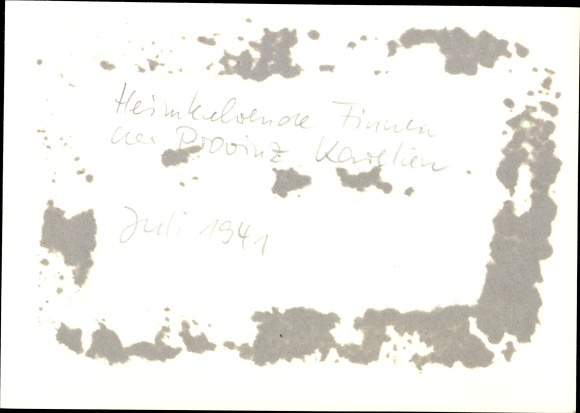 Heimkehrende Finnen
der Provinz Karelien.
Juli 1941